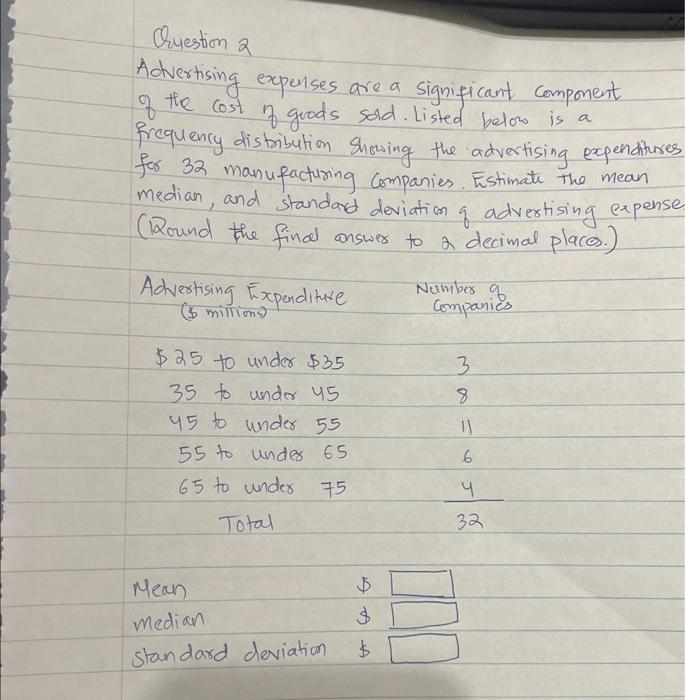 Question 2
Advertising expenses are a significant component
of the cost of goods sold. Listed below is a
frequency distribution showing the advertising expenditures
for 32 manufacturing companies. Estimate the mean
median, and standard deviation of advertising expense
(Round the final answer to 2 decimal places.)
Advertising Expenditure Number of
($ millions) Companies
$25 to under $35 3
35 to under 45 8
45 to under 55 11
55 to under 65 6
65 to under 75 4
Total 32
Mean $
median $
standard deviation $